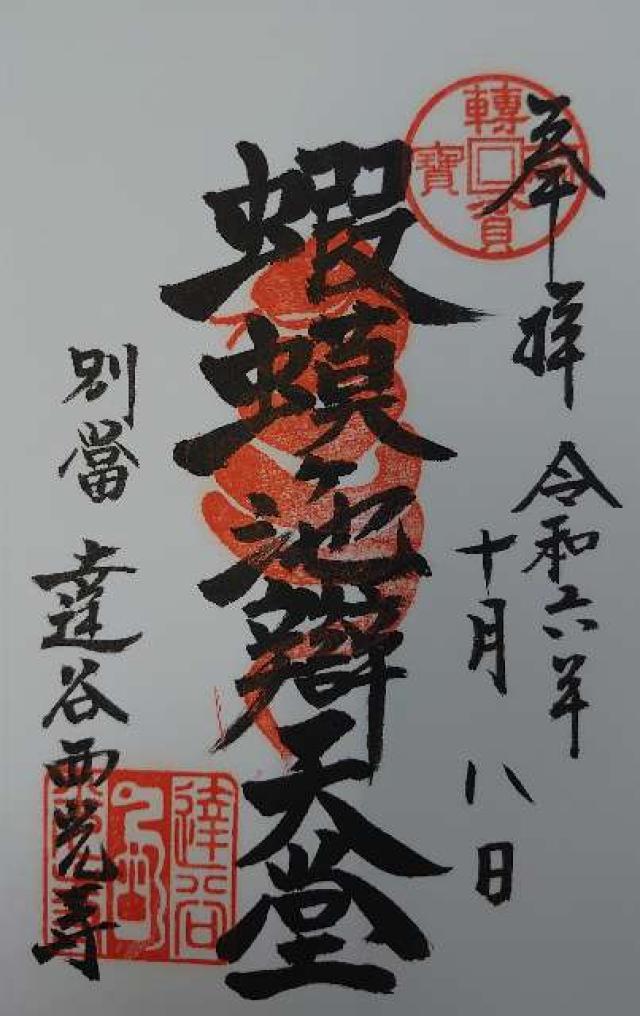 奉拝
令和六年
十月八日
蝦蟆ヶ池辯天堂
別當 達谷西光寺
達谷